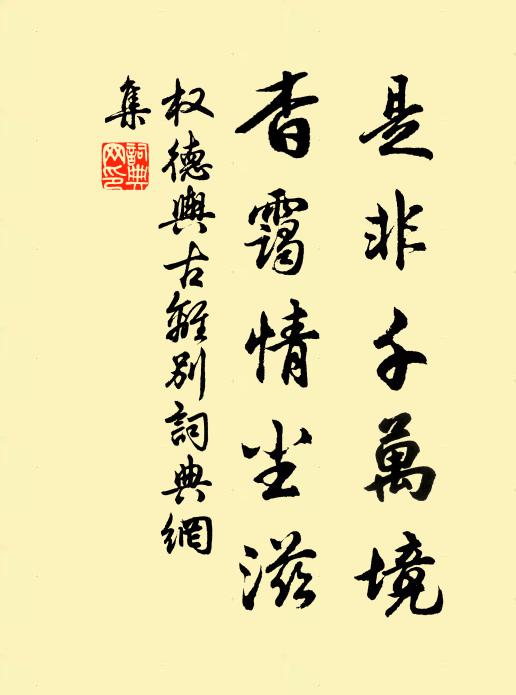 是非千萬境
杳靄情尘滋
权德輿古離別詞典網
集
詞典
网印